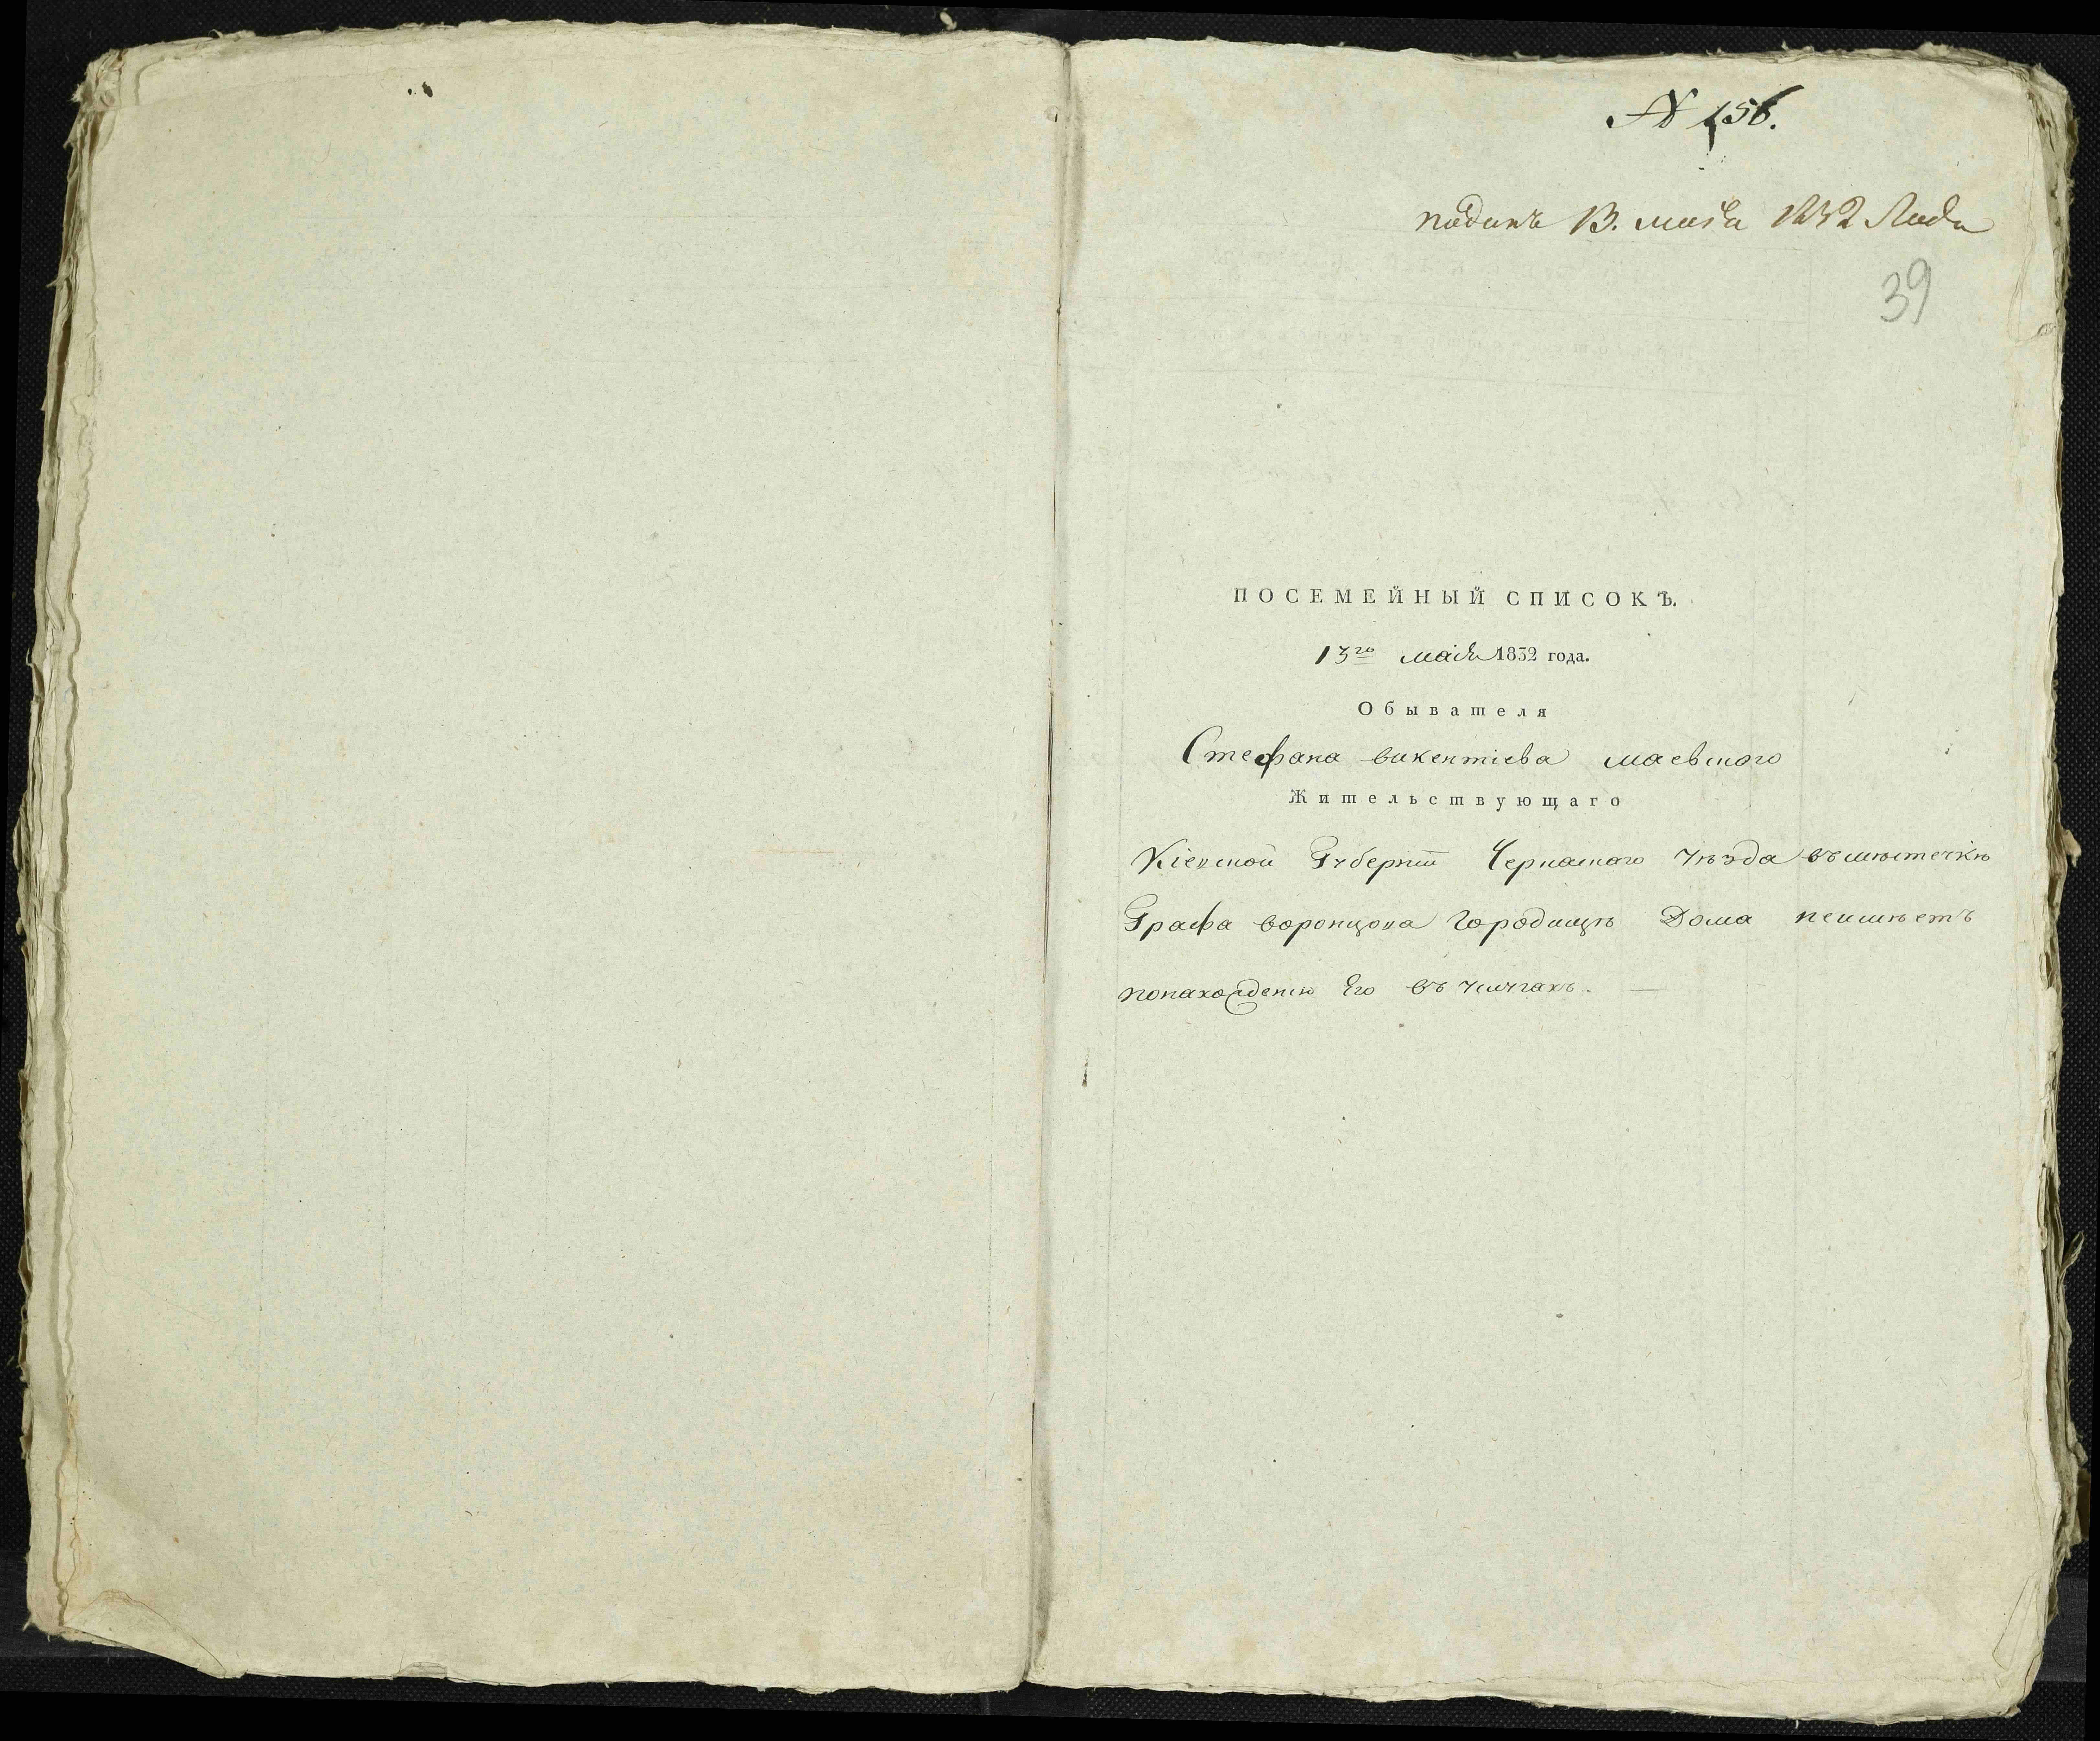 № 156.
поданъ 13. маiя 1832 Года
39
ПОСЕМЕЙНЫЙ СПИСОКЪ.
13го маiя 1832 года.
Обывателя
Стефана викентiева маевского
Жительствующаго
Кiевской Губернiи Черкаского уѣзда въ мѣстечкѣ
Графа воронцова Городищѣ Дома неимѣетъ
понахожденiю Его въ услугахъ. —